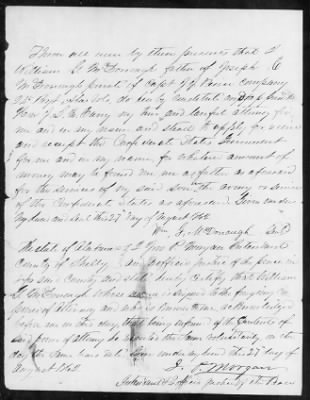 Know all men by these presents that I
William G. McDonough father of Joseph C
McDonough private of Capt
Regt Ala Vols, do hereby Constitute and appoint
Hon J. L. M. Curry my true and lawful attorney for
me and in my name and stead to apply for receive
and receipt the Confederate States Government
for me and in my name, for whatever amount of
money may be found due me as father as aforesaid
for the services of my said son in the army &
of the Confederate States as aforesaid. Given under
my hand and seal this 27 day of August 1862
Wm G. McDonough Seal
The State of Alabama
County of Shelby acting Justice of the peace in
for said County and State hereby certify that William
G. McDonough whose name is signed to the foregoing
power of attorney and who is known to me, acknowledged
before me on this day, that being informed of the Contents of
said power of attorney he executed the same voluntarily on the
day the same bears date. Given under my hand this 27 day of
August 1862
J. P. Morgan
Justice of the Peace